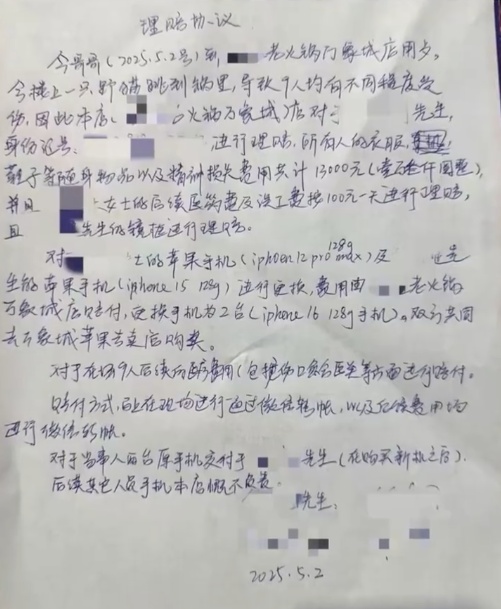 理赔协议
今哥哥(2025.5.2号)到 老火锅万象城店用夕,
今楼上一只野猫跳到锅里,导致9人均有不同程度受
伤,因此本店 火锅万象城)店对 先生,
身份证号: 进行理赔,所有人的衣服
鞋子等随身物品以及精神损失费用共计13000元(壹万 仟圆整),
并且 女士的后续医药费及误工费按100元一天进行理赔,
且 先生的镜框进行理赔。
对 士的苹果手机(iphoen 12 pro max 128g)及
生的苹果手机(iphone 15 128g)进行更换,费用由 老火锅
万象城店赔付,更换手机为2台(iphone 16 128g手机)。双方共同
去万象城苹果专卖店购买。
对于在场9人后续向医疗费用(包括伤口 等方面进行赔付。
赔付方式,即在现场进行通过微信转帐,以及后续费用均
进行微信转帐。
对于当事人2台原手机交付于 先生(在购买新机之后)。
后续其它人员手机本店概不负责
先生、
2025.5.2